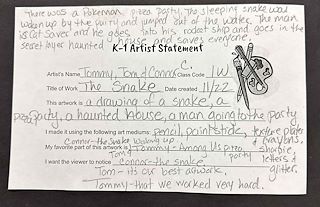 There was a Pokemon pizza party. The sleeping snake was
woken up by the party and jumped out of the water. The man
is Cat Saver and he goes into his rocket ship and goes in the
secret layer haunted house and saves everyone.
K-1 Artist Statement
Artist's Name Tommy, Tom & Connor C. Class Code 1W
Title of Work The Snake Date created 11/22
This artwork is a drawing of a snake, a
pizza party, a haunted house, a man going to the party
I made it using the following art mediums: pencil, paintstick, texture plates
Connor-the Snake Waking up & crayons,
My favorite part of this artwork is Tommy - Among Us pizza party sharpie,
Tom letters &
I want the viewer to notice Connor-the snake glitter.
Tom - it's our best artwork,
Tommy-that we worked very hard.